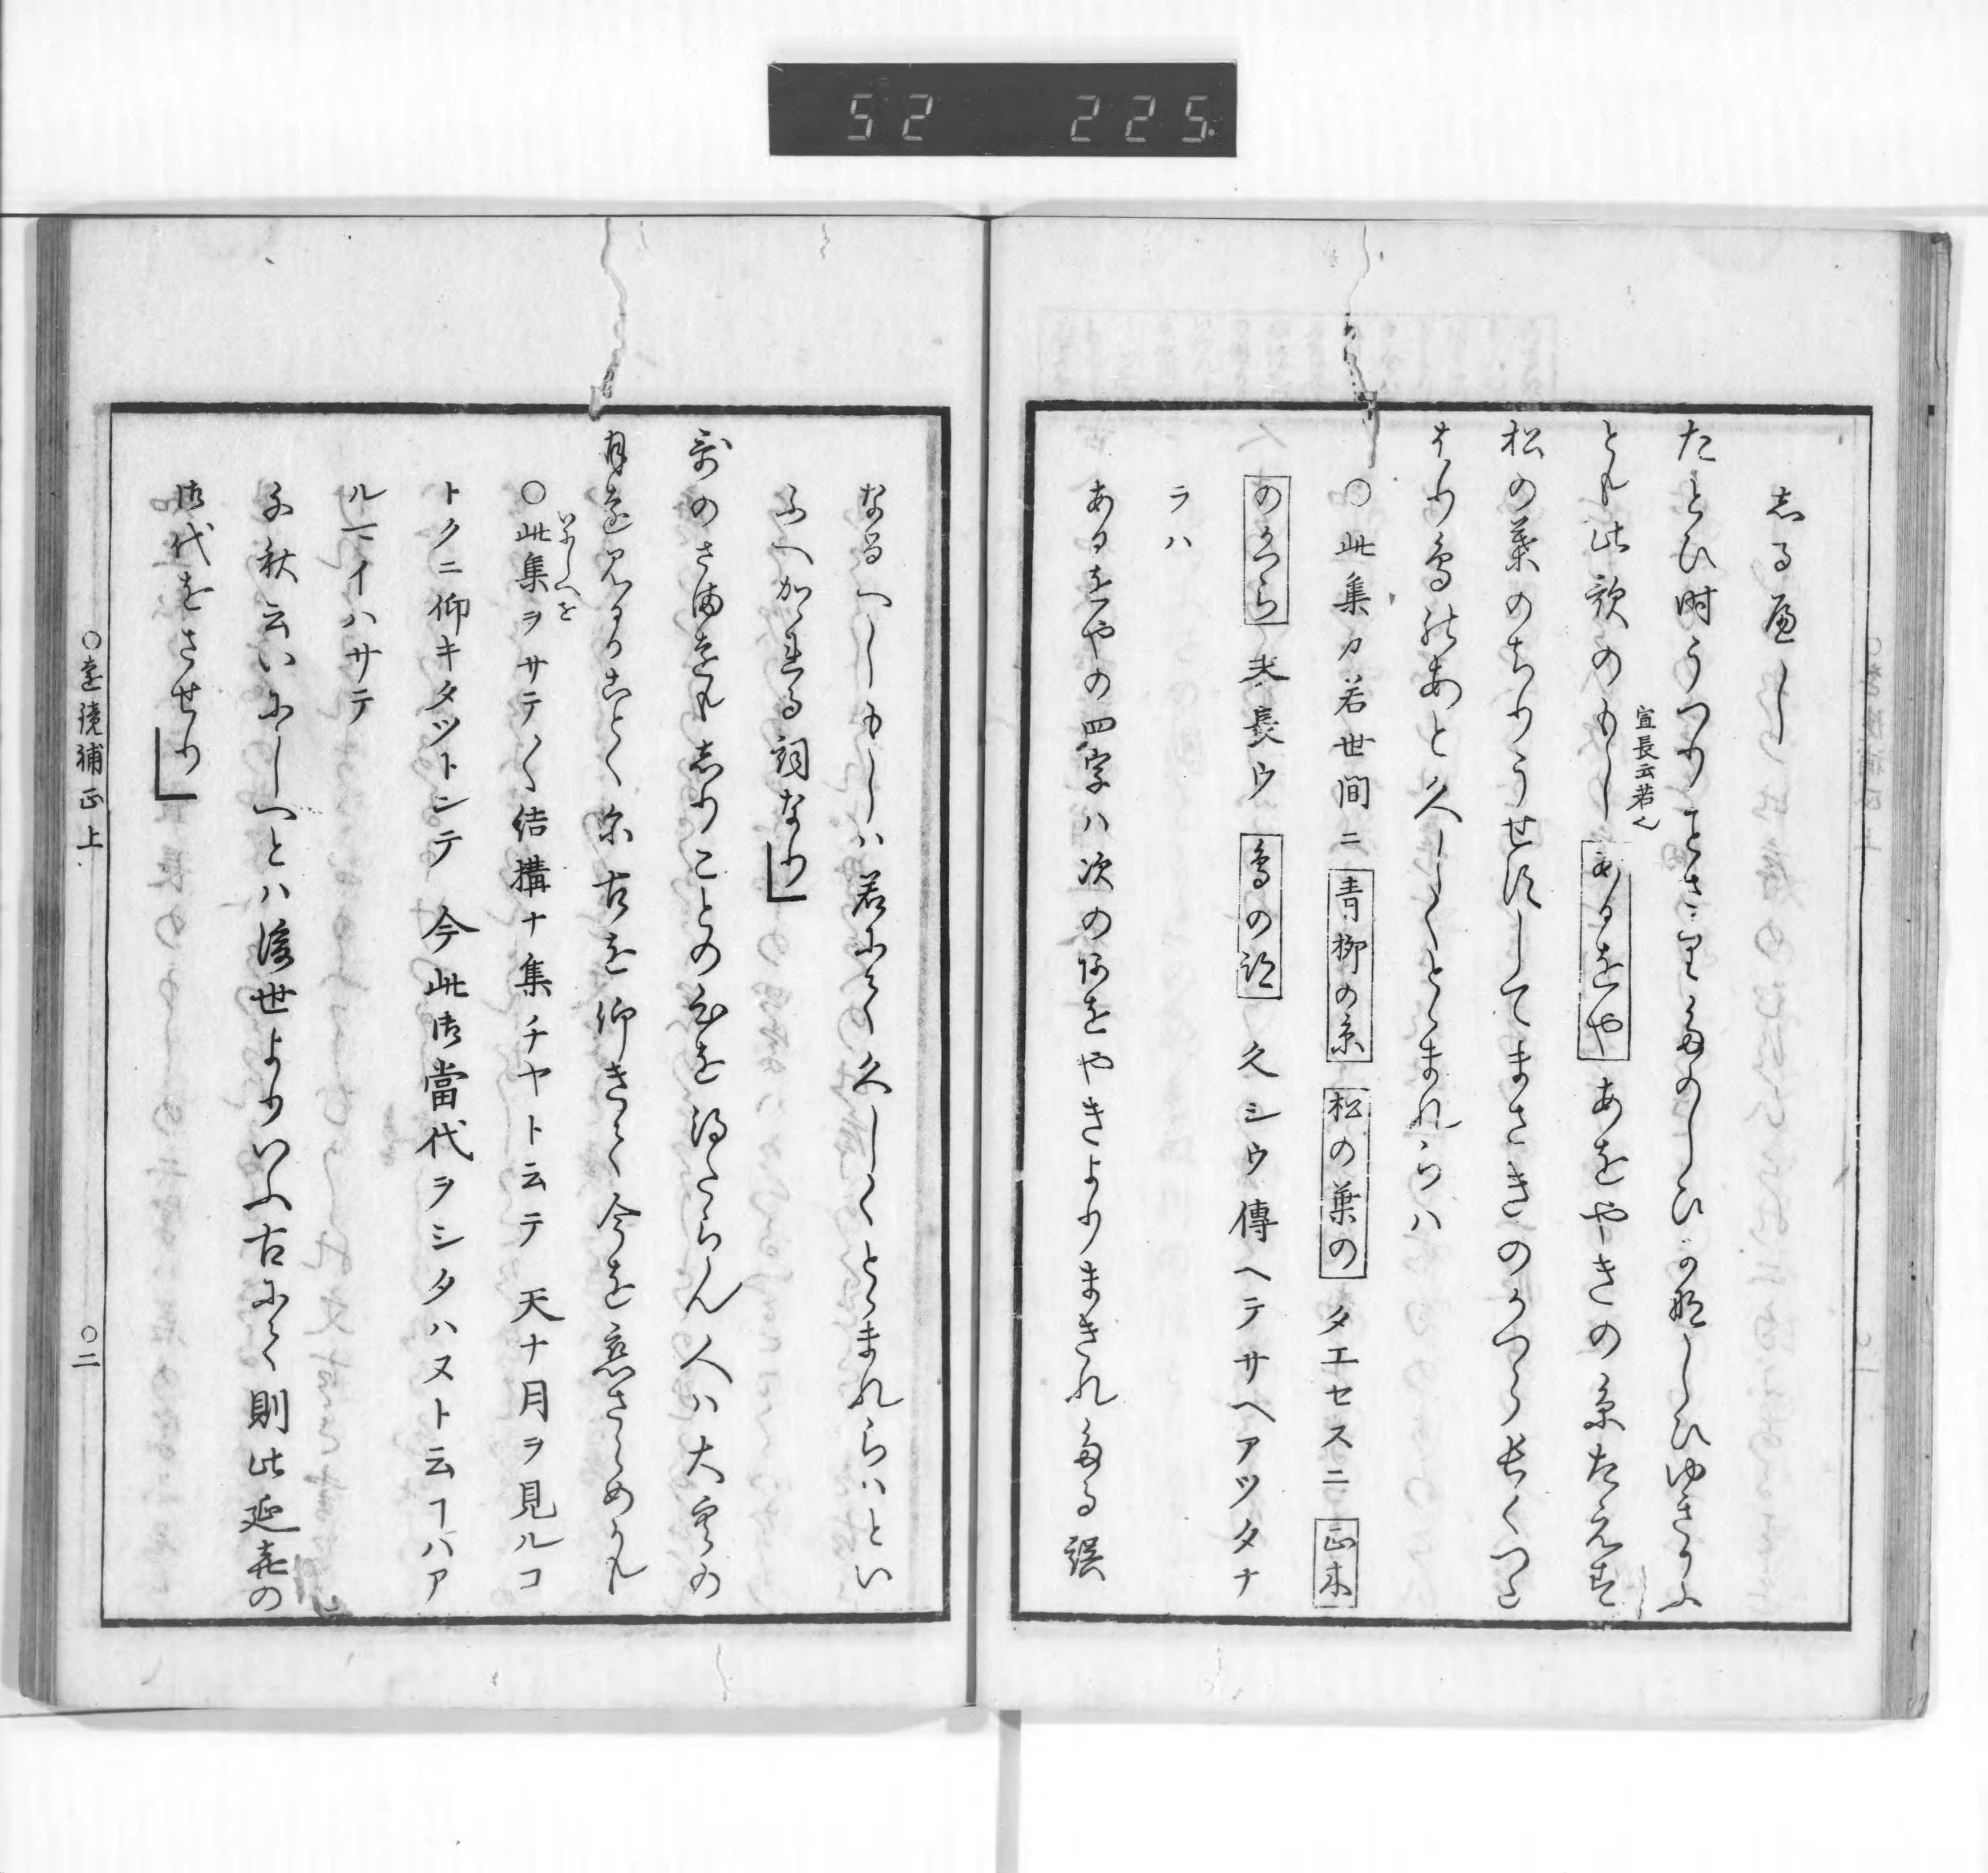 52 225
しる(へ)し
たとひ時うつりことさりたのしひかなしひゆきかふ
とも此歌のもし
宣長云若く
あるをや
あをやきの糸たえす
松の葉のちりうせすしてまさきのかつら長くつた
はり鳥のあと久しくとゝまれらハ
○此集カ若世間ニ青柳の糸 松の葉のタエセスニ正木
のかつら 長ウ鳥の跡久シウ傳ヘテサヘアツタナ
ラハ
あるをやの四字ハ次のあをやきよりまきれたる誤
なるへしもしハ若にて久しくとゝまれらハとい
ふへ加れる詞なり
哥のさまをもしりことの心を得たらん人ハ大空の
月を見るることく尓古を仰きて今を恋さらめかも
いにしへを
○此集ヲサテ〱結構ナ集チヤト云テ天ナ月ヲ見ルコ
トクニ仰キタツトンテ今此御當代ヲシタハヌト云ヿハア
ルマイハサテ
千秋云いにしへとハ後世よりいふ古にて則此延喜の
御代をさせり
○遠鏡補正上 ○二